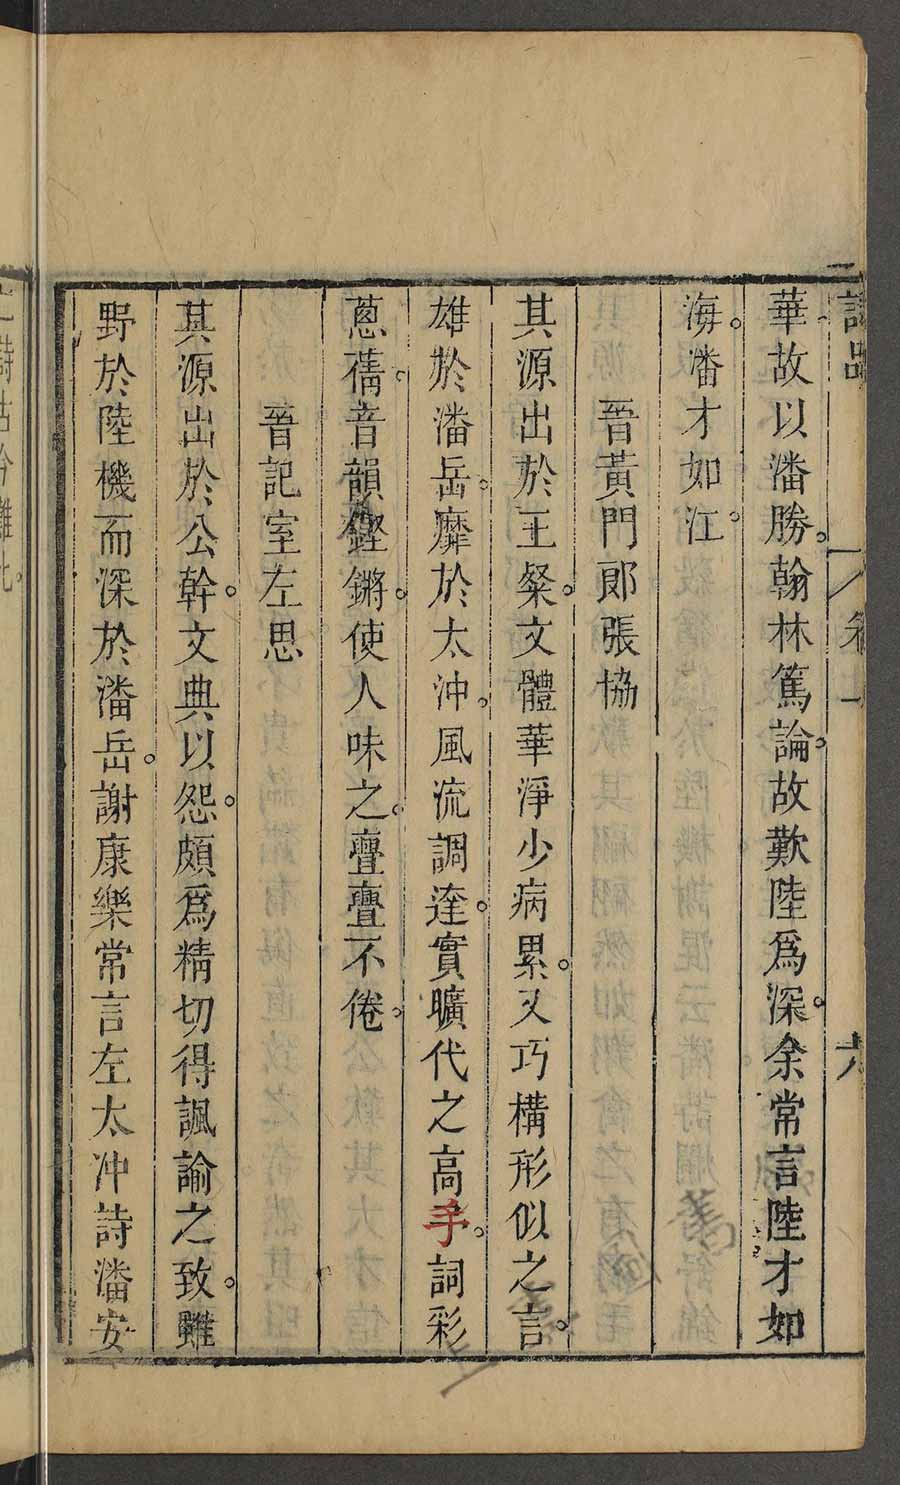 詩品 卷一 六
華故以潘勝。翰林篤論。故歎陸爲深。余常言陸才如
海。潘才如江。
晉黃門郞張協
其源出於王粲。文體華淨少病累。又巧構形似之言。
雄於潘岳。靡於太沖。風流調達。實曠代之高手。詞彩
蔥蒨。音韻鏗鏘。使人味之。亹亹不倦。
晉記室左思
其源出於公幹。文典以怨。頗爲精切得諷諭之致。雖
野於陸機而深於潘岳。謝康樂常言左太沖詩潘安